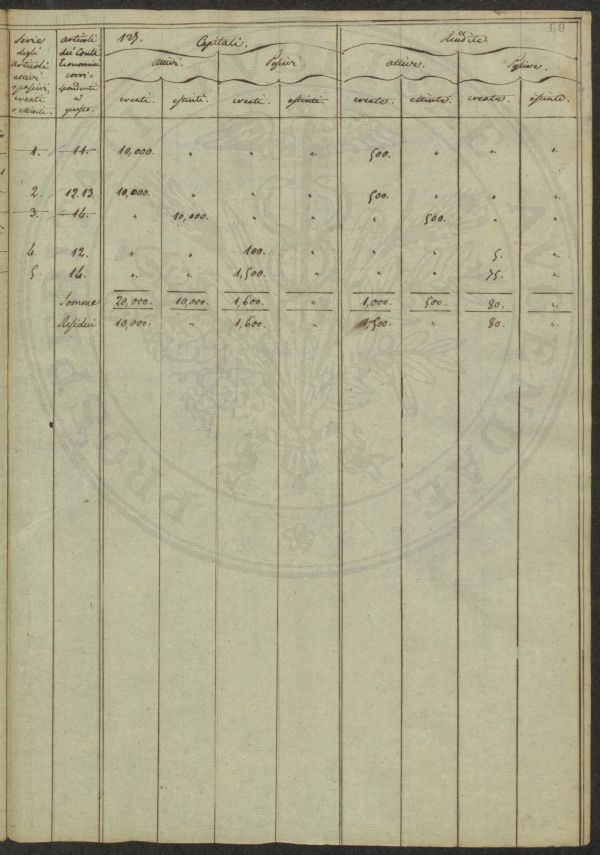 60
Serie degli articoli attivi e passivi, creati o estinti.
articoli dei Conti Economici corrispondenti a questo.
123. Capitali. Rendite.
attivi. Passivi. attive. Passive.
creati. estinti. creati. estinti. create. estinte. create. estinte.
1. 11. 10,000. " " " 500. " " "
2. 12.13. 10,000. " " " 500. " " "
3. 14. " 10,000. " " " 500. " "
4. 12. " " 100. " " " 5. "
5. 14. " " 1,500. " " " 75. "
Somme 20,000. 10,000. 1,600. " 1,000. 500. 80. "
Residui 10,000. " 1,600. " 1,500. " 80. "